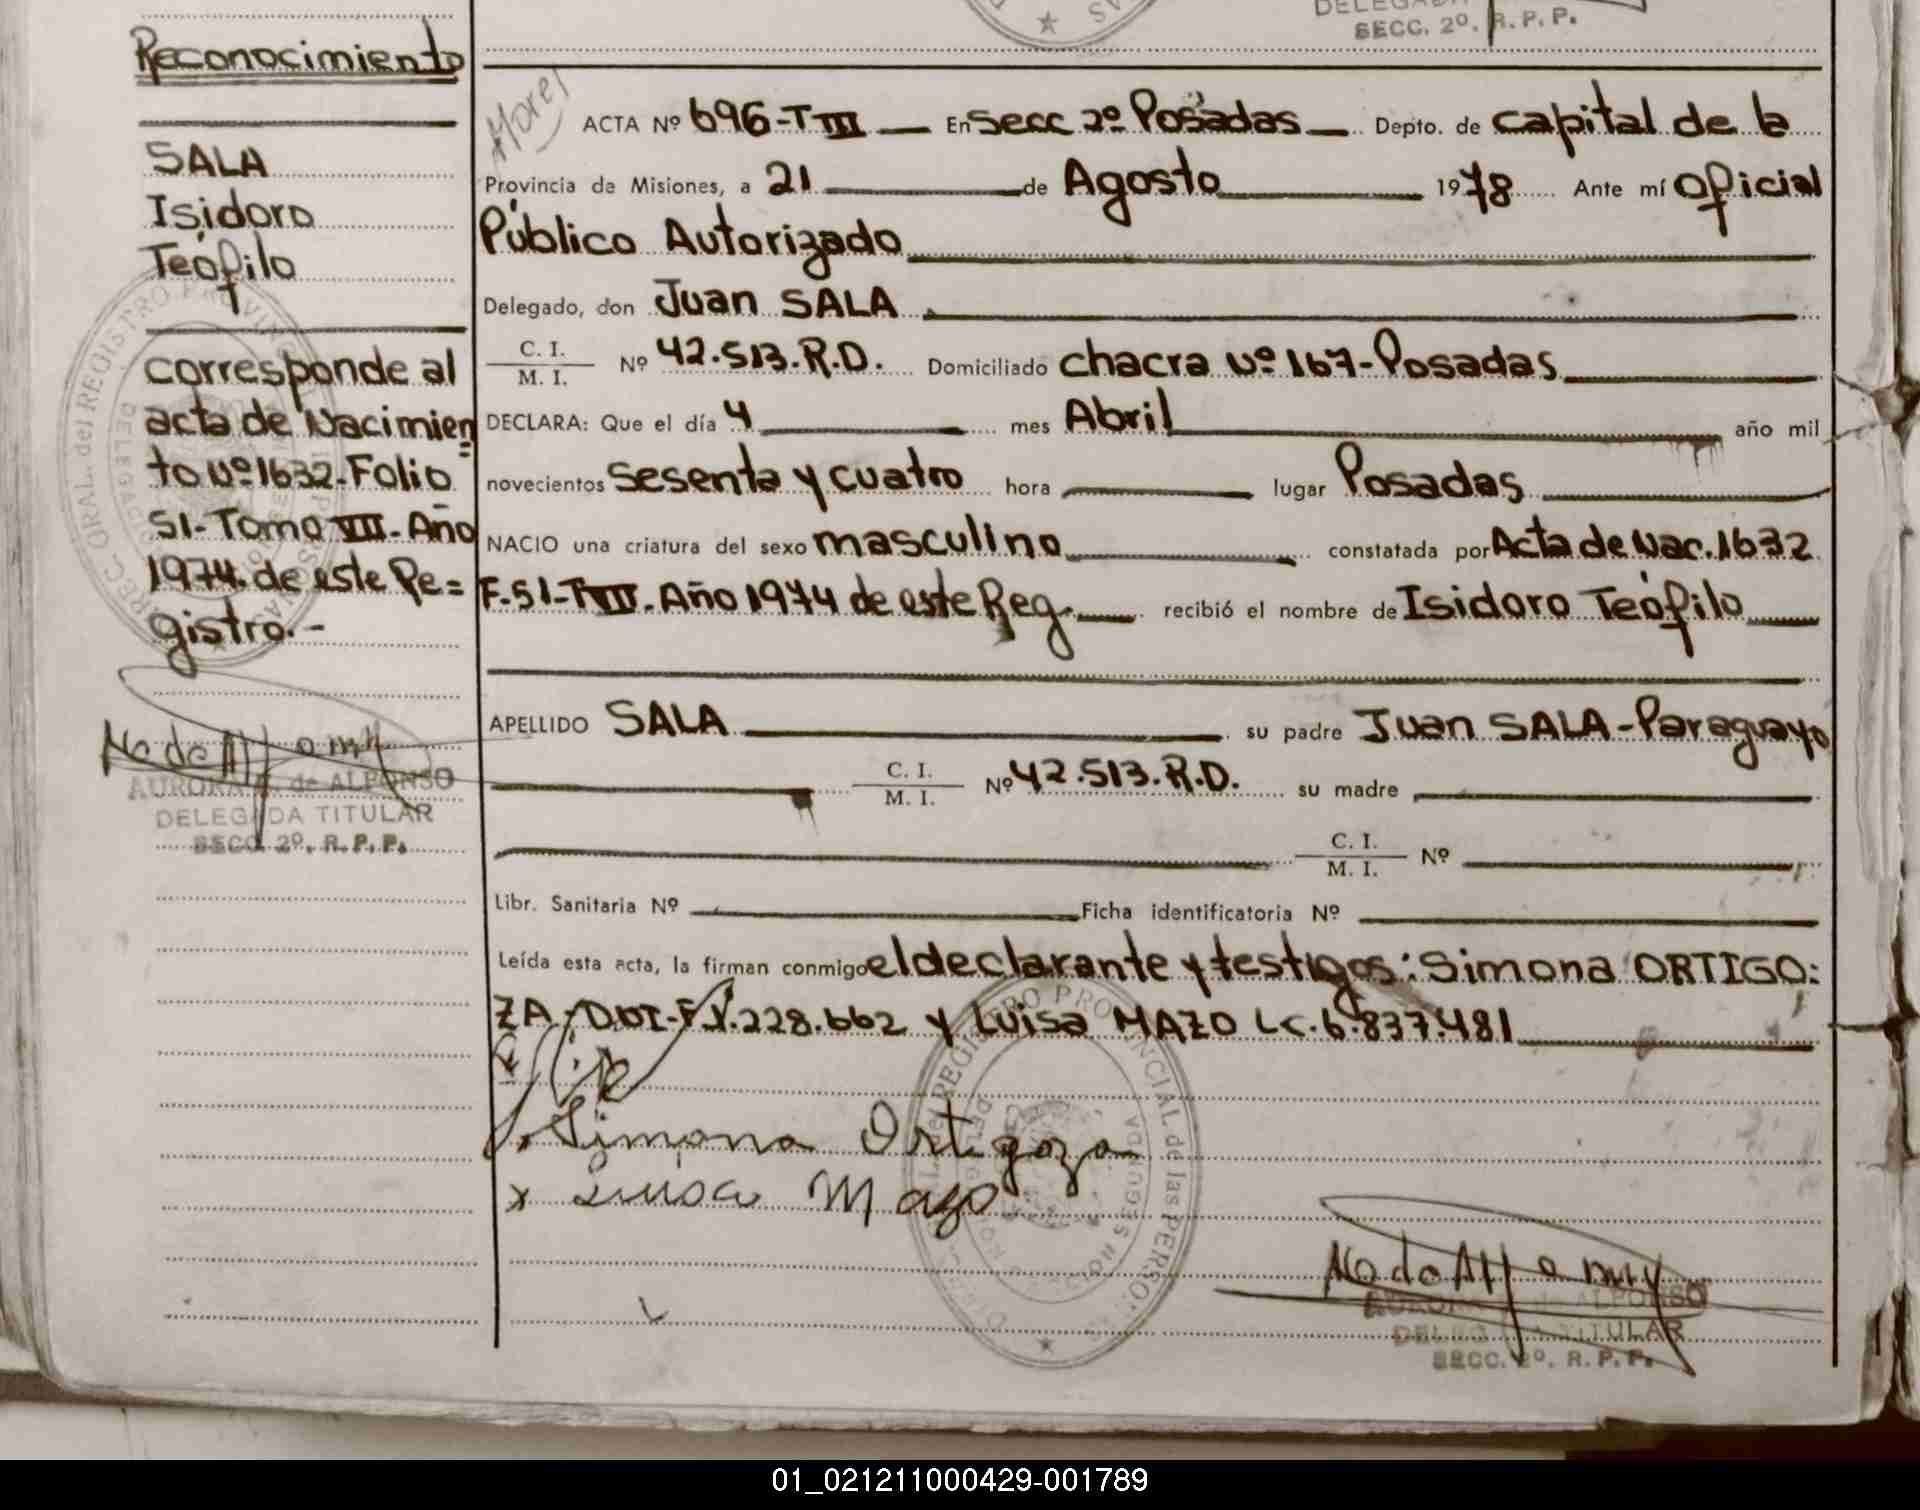 SECC. 2º. R. P. P.
Reconocimiento
SALA
Isidoro
Teófilo
corresponde al
acta de Nacimien=
to Nº 1632-Folio
51-Tomo VII-Año
1974. de este Re=
gistro.-
AURORA de ALFONSO
DELEGADA TITULAR
SECC. 2º. R. P. P.
ACTA Nº 696-T III En Secc 2º Posadas Depto. de capital de la
Provincia de Misiones, a 21 de Agosto 1978 Ante mí Oficial
Público Autorizado
Delegado, don Juan SALA
C. I. / M. I. Nº 42.513.R.D. Domiciliado chacra Nº 167-Posadas
DECLARA: Que el día 4 mes Abril año mil
novecientos sesenta y cuatro hora lugar Posadas
NACIO una criatura del sexo masculino constatada por Acta de Nac. 1632
F-51-T VII. Año 1974 de este Reg. recibió el nombre de Isidoro Teófilo
APELLIDO SALA su padre Juan SALA-Paraguayo
C. I. / M. I. Nº 42.513.R.D. su madre
C. I. / M. I. Nº
Libr. Sanitaria Nº Ficha identificatoria Nº
Leída esta acta, la firman conmigo el declarante y testigos: Simona ORTIGO=
ZA-DNI-F.1.228.662 y Luisa MAZO LC. 6.837.481
Simona Ortigoza
x Luisa Mazo
AURORA de ALFONSO
DELEGADA TITULAR
SECC. 2º. R. P. P.
01_021211000429-001789